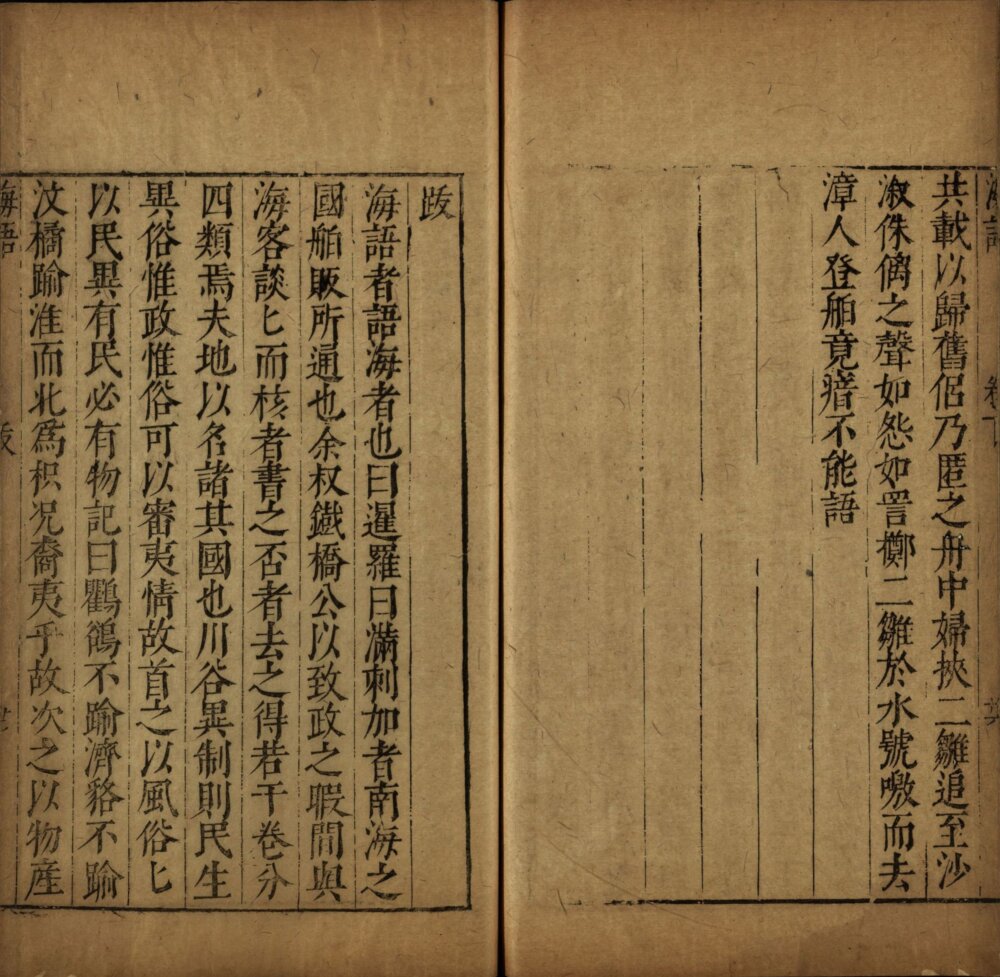 共載以歸舊侶乃匿之舟中婦挾二雛追至沙
漵侏㒧之聲如怨如詈擲二雛於水號噭而去
漳人登舶竟瘖不能語
跋
海語者語海者也曰暹羅曰滿剌加者南海之
國舶販所通也余叔鐵橋公以致政之暇間與
海客談匕而核者書之否者去之得若干卷分
四類焉夫地以名諸其國也川谷異制則民生
異俗惟政惟俗可以審夷情故首之以風俗匕
以民異有民必有物記曰鸜鵒不踰濟貉不踰
汶橘踰淮而北爲枳况裔夷乎故次之以物產
海語